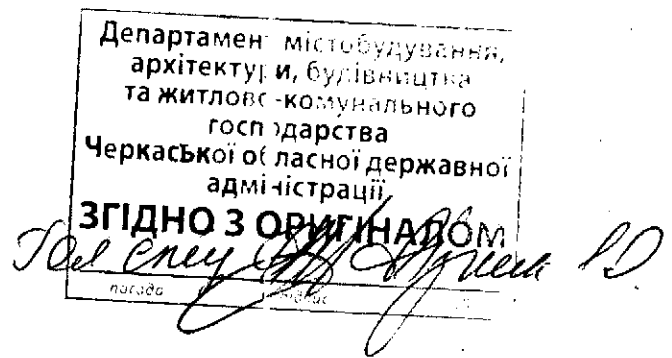 Департамент містобудування,
архітектури, будівництва
та житлово-комунального
господарства
Черкаської обласної державної
адміністрації
ЗГІДНО З ОРИГІНАЛОМ
Гол спец
посада підпис